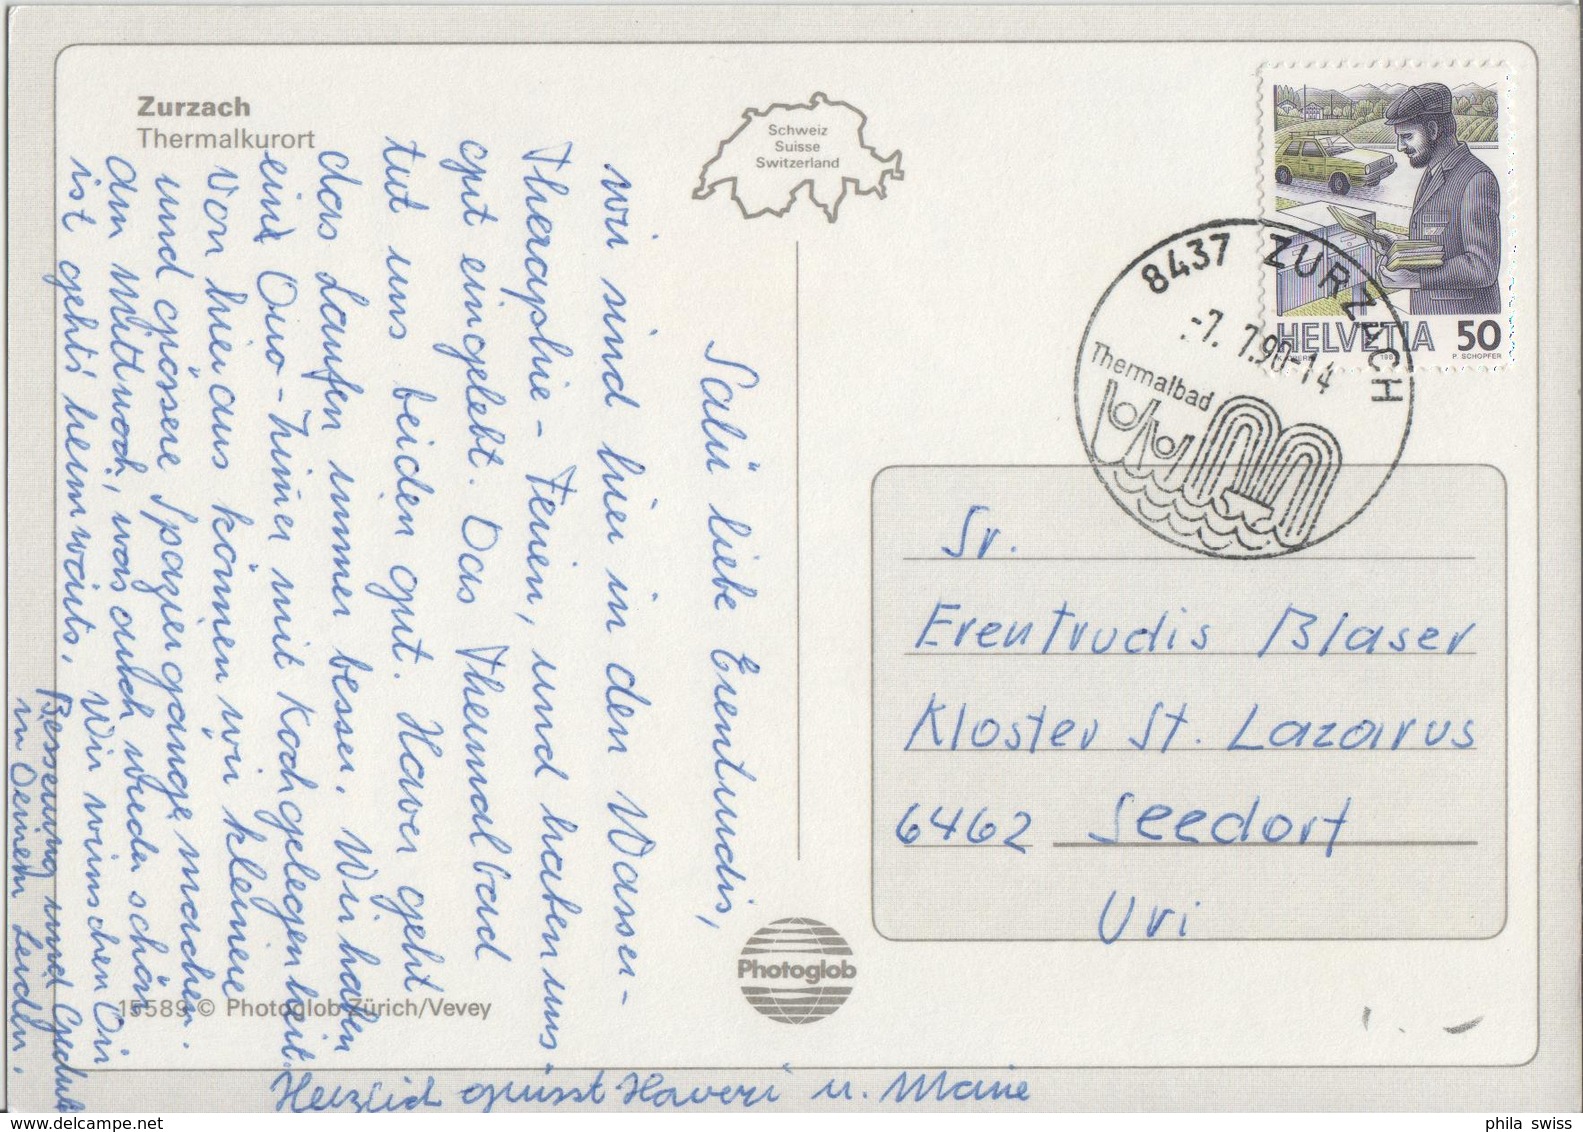 Zurzach
Thermalkurort
Schweiz
Suisse
Switzerland
HELVETIA 50
P. SCHOPFER
8437 ZURZACH
-7. 7.90-14
Thermalbad
Salü liebe Erentrudis,
wir sind hier in den Wasser-
Theraphie-Ferien, und haben uns
gut eingelebt. Das Thermalbad
tut uns beiden gut. Haver geht
das Laufen immer besser. Wir haben
ein Duo-Zimer mit Kochgelegenheit.
Von hier aus können wir kleinere
und grössere Spaziergänge machen.
Am Mittwoch, was auch wieder schön
ist geht's heimwärts. Wir wünschen Dir
Besserung und Geduld
in Deinem Leiden.
Herzlich grüsst Haveri u. Marie
Sr.
Erentrudis Blaser
Kloster St. Lazarus
6462 Seedorf
Uri
Photoglob
15589 © Photoglob Zürich/Vevey
phila swiss
www.delcampe.net